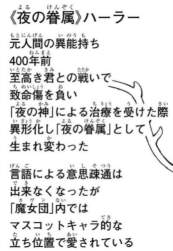 《夜の眷属》ハーラー
元人間の異能持ち
400年前
至高き君との戦いで
致命傷を負い
「夜の神」による治療を受けた際
異形化し「夜の眷属」として
生まれ変わった
言語による意思疎通は
出来なくなったが
「魔女団」内では
マスコットキャラ的な
立ち位置で愛されている